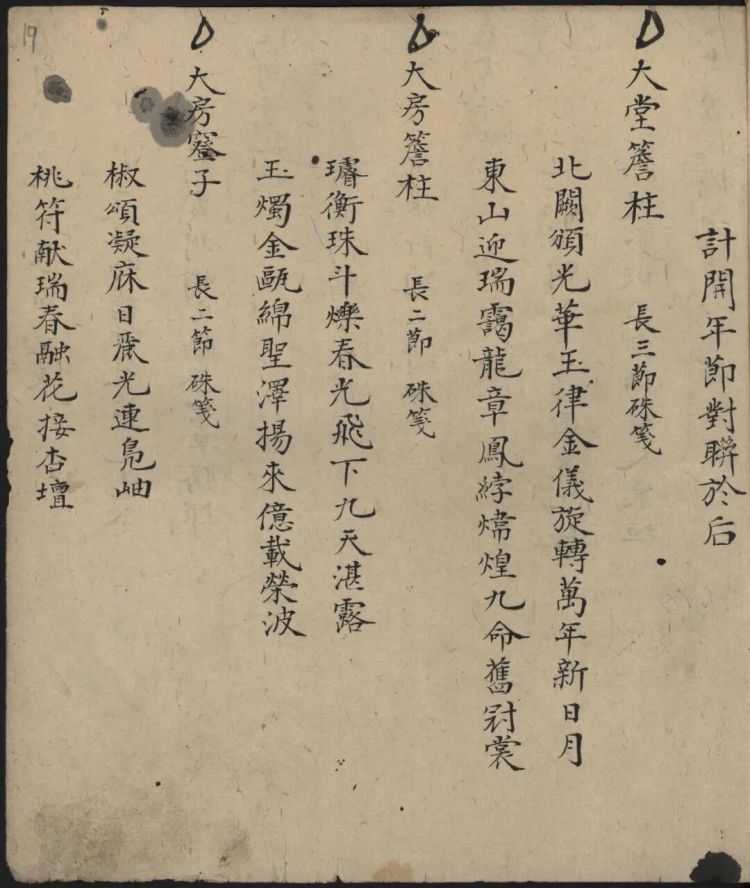 計開年節對聯於后
大堂簷柱 長三節硃箋
北闕頒光華玉律金儀旋轉萬年新日月
東山迎瑞靄龍章鳳綍煒煌九命舊冠裳
大房簷柱 長二節硃箋
璿衡珠斗爍春光飛下九天湛露
玉燭金甌綿聖澤揚來億載榮波
大房窰子 長二節硃箋
椒頌凝庥日飛光連鳧岫
桃符献瑞春融花接杏壇
19